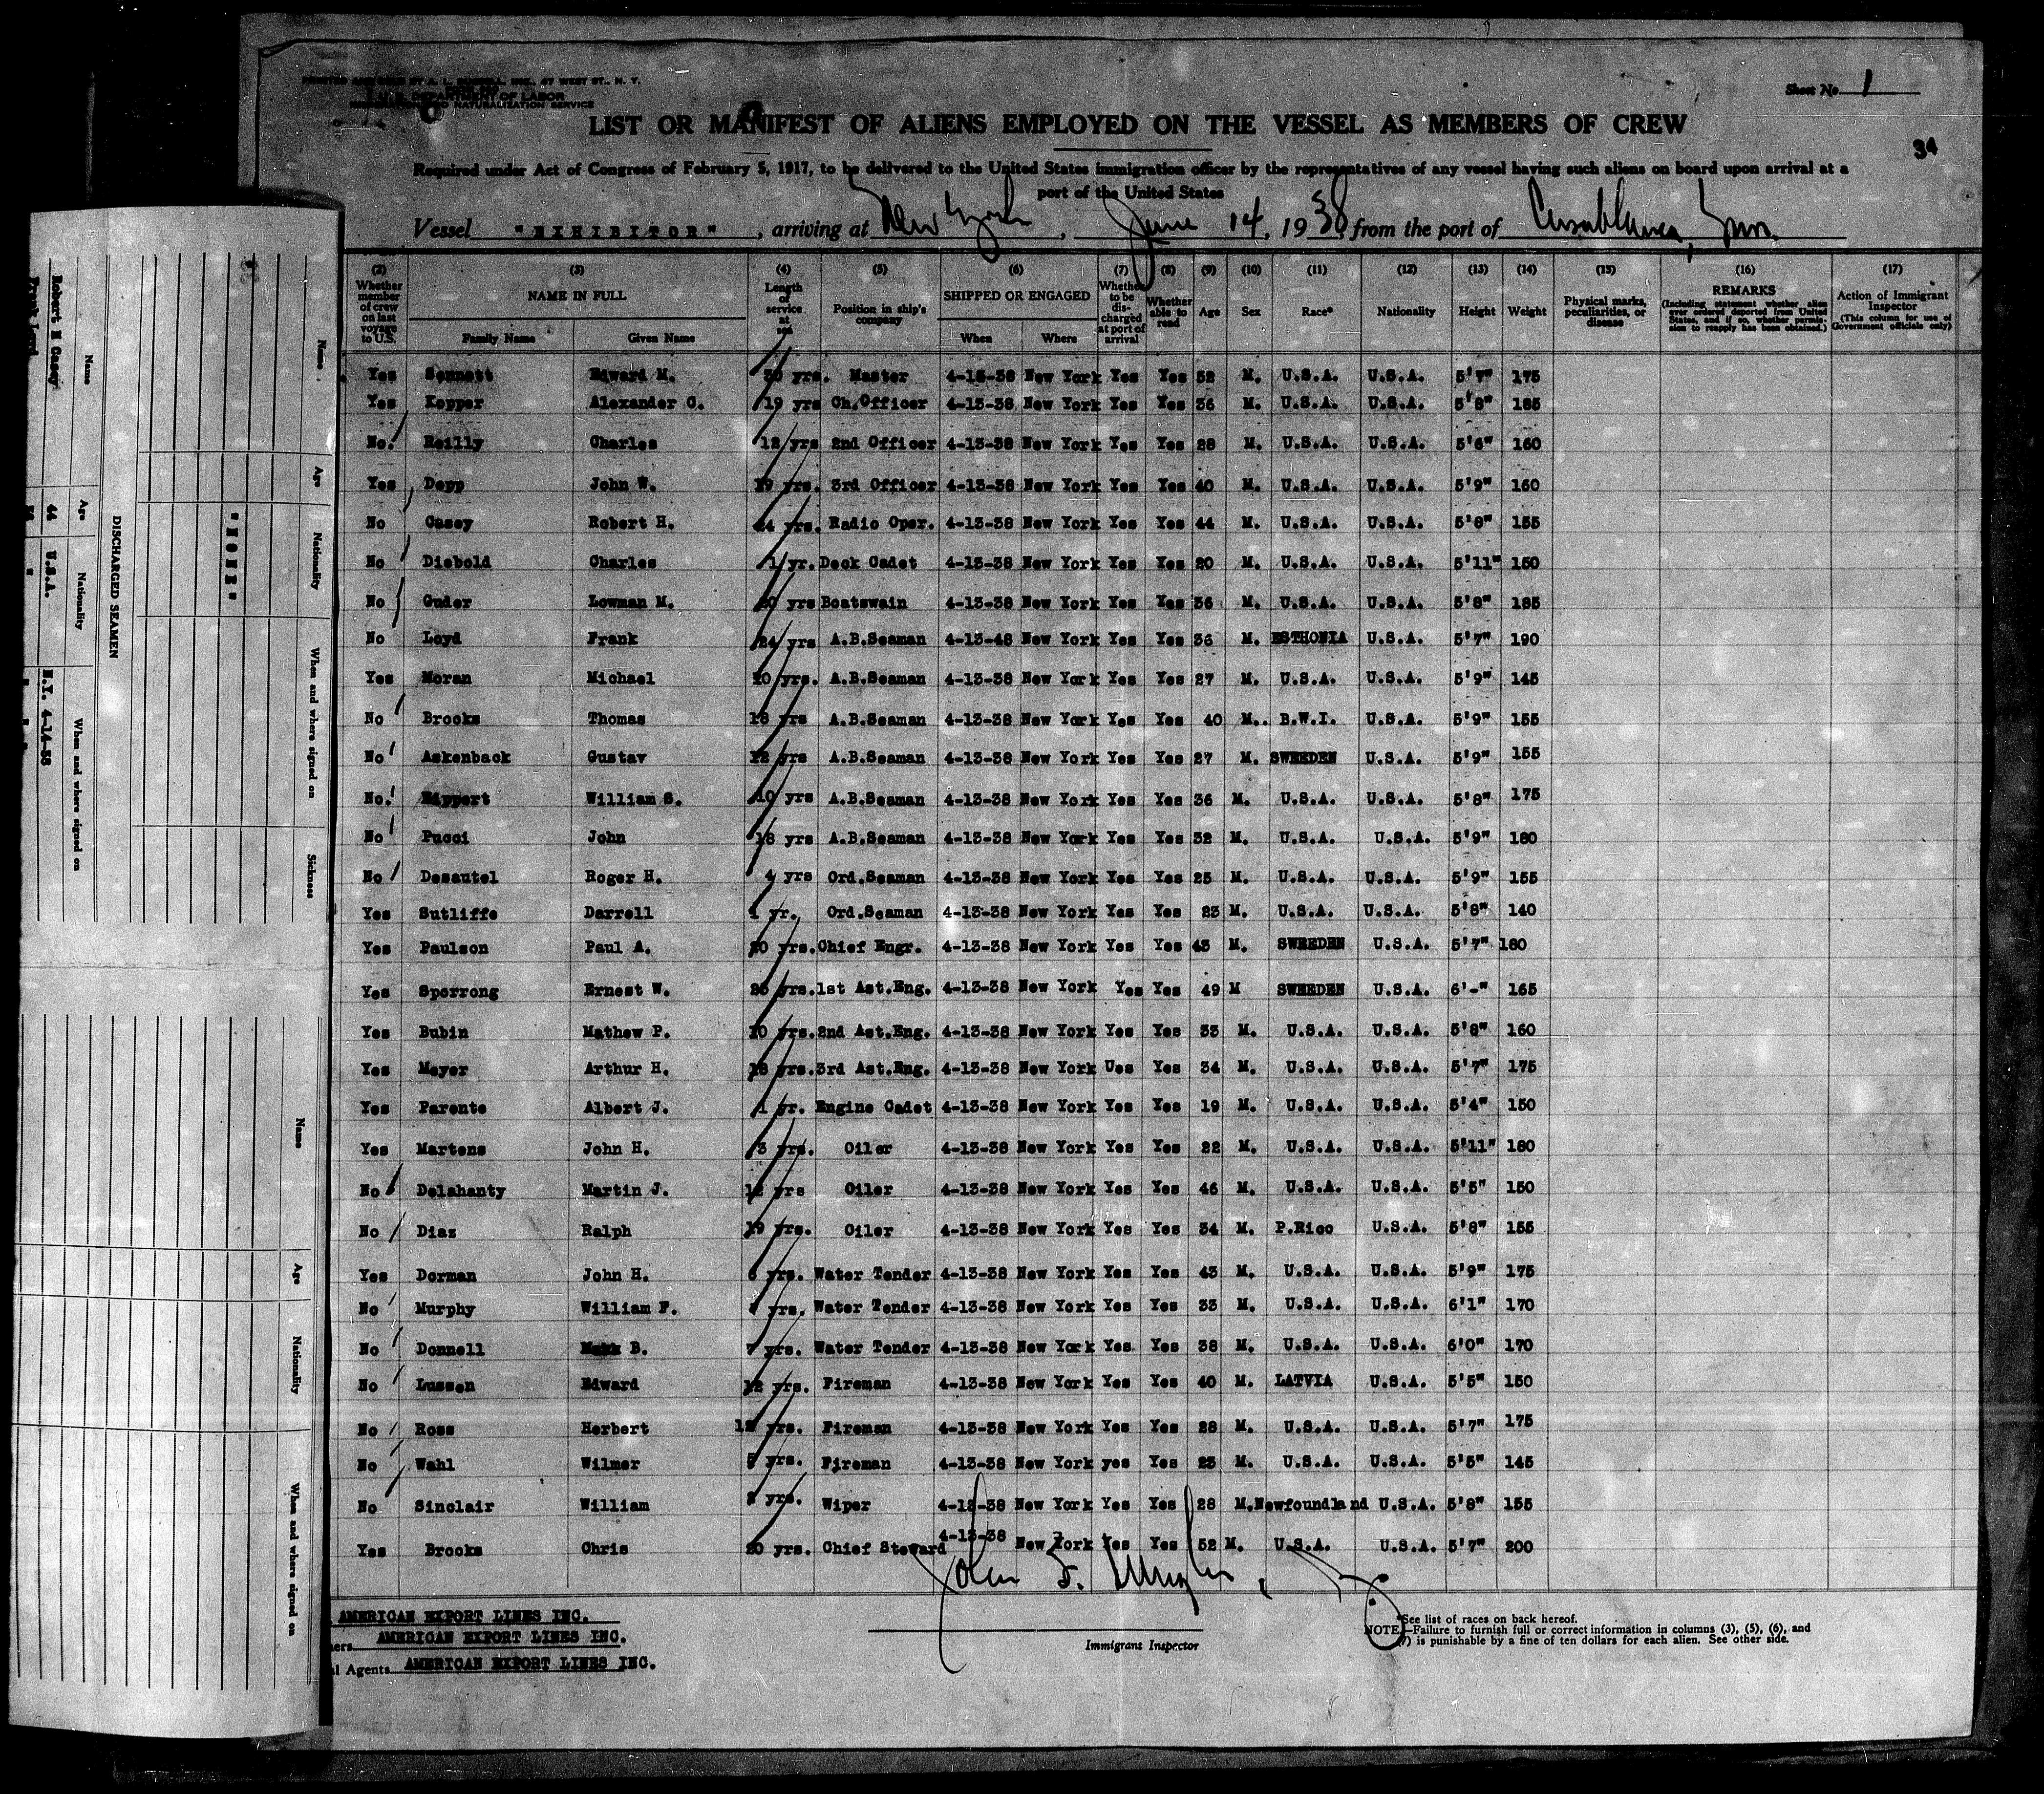 PRINTED AND SOLD BY A. L. RUSSELL, INC., 47 WEST ST., N. Y.
U. S. DEPARTMENT OF LABOR
IMMIGRATION AND NATURALIZATION SERVICE
Sheet No. 1
34
LIST OR MANIFEST OF ALIENS EMPLOYED ON THE VESSEL AS MEMBERS OF CREW
Required under Act of Congress of February 5, 1917, to be delivered to the United States immigration officer by the representatives of any vessel having such aliens on board upon arrival at a
port of the United States
Vessel "EXHIBITOR", arriving at New York, June 14, 1938, from the port of Casablanca,
(2) (3) (4) (5) (6) (7) (8) (9) (10) (11) (12) (13) (14) (15) (16) (17)
Whether member of crew on last voyage to U.S. NAME IN FULL Family Name Given Name Length of service at sea Position in ship's company SHIPPED OR ENGAGED When Where Whether to be discharged at port of arrival Whether able to read Age Sex Race* Nationality Height Weight Physical marks, peculiarities, or disease REMARKS (Including statement whether alien ever ordered deported from United States, and if so, whether permission to reapply has been obtained.) Action of Immigrant Inspector (This column for use of Government officials only)
Yes Sennett Edward M. 30 yrs. Master 4-13-38 New York Yes Yes 52 M. U.S.A. U.S.A. 5'7" 175
Yes Kopper Alexander C. 19 yrs Ch.Officer 4-13-38 New York Yes Yes 36 M. U.S.A. U.S.A. 5'8" 185
No. Reilly Charles 12 yrs 2nd Officer 4-13-38 New York Yes Yes 28 M. U.S.A. U.S.A. 5'6" 160
Yes Depp John W. 19 yrs. 3rd Officer 4-13-38 New York Yes Yes 40 M. U.S.A. U.S.A. 5'9" 160
No Casey Robert H. 24 yrs. Radio Oper. 4-13-38 New York Yes Yes 44 M. U.S.A. U.S.A. 5'8" 155
No Diebold Charles 1 yr. Deck Cadet 4-13-38 New York Yes Yes 20 M. U.S.A. U.S.A. 5'11" 150
No Guder Lowman M. 20 yrs Boatswain 4-13-38 New York Yes Yes 36 M. U.S.A. U.S.A. 5'8" 185
No Loyd Frank 24 yrs A.B.Seaman 4-13-48 New York Yes Yes 36 M. ESTHONIA U.S.A. 5'7" 190
Yes Moran Michael 10 yrs. A.B.Seaman 4-13-38 New York Yes Yes 27 M. U.S.A. U.S.A. 5'9" 145
No Brooks Thomas 18 yrs A.B.Seaman 4-13-38 New York Yes Yes 40 M.. B.W.I. U.S.A. 5'9" 155
No Askenback Gustav 12 yrs A.B.Seaman 4-13-38 New York Yes Yes 27 M. SWEEDEN U.S.A. 5'9" 155
No. Hippert William S. 10 yrs A.B.Seaman 4-13-38 New York Yes Yes 36 M. U.S.A. U.S.A. 5'8" 175
No Pucci John 18 yrs A.B.Seaman 4-13-38 New York Yes Yes 32 M. U.S.A. U.S.A. 5'9" 180
No Desautel Roger H. 4 yrs Ord.Seaman 4-13-38 New York Yes Yes 25 M. U.S.A. U.S.A. 5'9" 155
Yes Sutliffe Darrell 1 yr. Ord.Seaman 4-13-38 New York Yes Yes 23 M. U.S.A. U.S.A. 5'8" 140
Yes Paulson Paul A. 20 yrs. Chief Engr. 4-13-38 New York Yes Yes 43 M. SWEEDEN U.S.A. 5'7" 180
Yes Sperrong Ernest W. 25 yrs. 1st Ast.Eng. 4-13-38 New York Yes Yes 49 M SWEEDEN U.S.A. 6'-" 165
Yes Bubin Mathew P. 10 yrs. 2nd Ast.Eng. 4-13-38 New York Yes Yes 33 M. U.S.A. U.S.A. 5'8" 160
Yes Meyer Arthur H. 18 yrs. 3rd Ast.Eng. 4-13-38 New York Ues Yes 34 M. U.S.A. U.S.A. 5'7" 175
Yes Parente Albert J. 1 yr. Engine Cadet 4-13-38 New York Yes Yes 19 M. U.S.A. U.S.A. 5'4" 150
Yes Martens John H. 3 yrs. Oiler 4-13-38 New York Yes Yes 22 M. U.S.A. U.S.A. 5'11" 180
No Delahanty Martin J. 12 yrs Oiler 4-13-38 New York Yes Yes 46 M. U.S.A. U.S.A. 5'5" 150
No Diaz Ralph 19 yrs. Oiler 4-13-38 New York Yes Yes 34 M. P.Rico U.S.A. 5'8" 155
Yes Dorman John H. 6 yrs. Water Tender 4-13-38 New York Yes Yes 43 M. U.S.A. U.S.A. 5'9" 175
No Murphy William F. yrs. Water Tender 4-13-38 New York Yes Yes 33 M. U.S.A. U.S.A. 6'1" 170
No Donnell Mark B. 7 yrs. Water Tender 4-13-38 New York Yes Yes 38 M. U.S.A. U.S.A. 6'0" 170
No Lussen Edward 12 yrs. Fireman 4-13-38 New York Yes Yes 40 M. LATVIA U.S.A. 5'5" 150
No Ross Herbert yrs. Fireman 4-13-38 New York Yes Yes 28 M. U.S.A. U.S.A. 5'7" 175
No Wahl Wilmer 5 yrs. Fireman 4-13-38 New York yes Yes 23 M. U.S.A. U.S.A. 5'5" 145
No Sinclair William yrs. Wiper 4-13-38 New York Yes Yes 28 M. Newfoundland U.S.A. 5'8" 155
Yes Brooks Chris 20 yrs. Chief Steward 4-13-38 New York Yes Yes 52 M. U.S.A. U.S.A. 5'7" 200
AMERICAN EXPORT LINES INC.
AMERICAN EXPORT LINES INC.
l Agents AMERICAN EXPORT LINES INC.
Immigrant Inspector
*See list of races on back hereof.
NOTE.—Failure to furnish full or correct information in columns (3), (5), (6), and
(7) is punishable by a fine of ten dollars for each alien. See other side.
Name Age Nationality When and where signed on Sickness
"NONE"
DISCHARGED SEAMEN
Name Age Nationality When and where signed on
Robert H Casey 44 U.S.A. N.Y. 4-14-38
Frank Loyd
Name Age Nationality When and where signed on